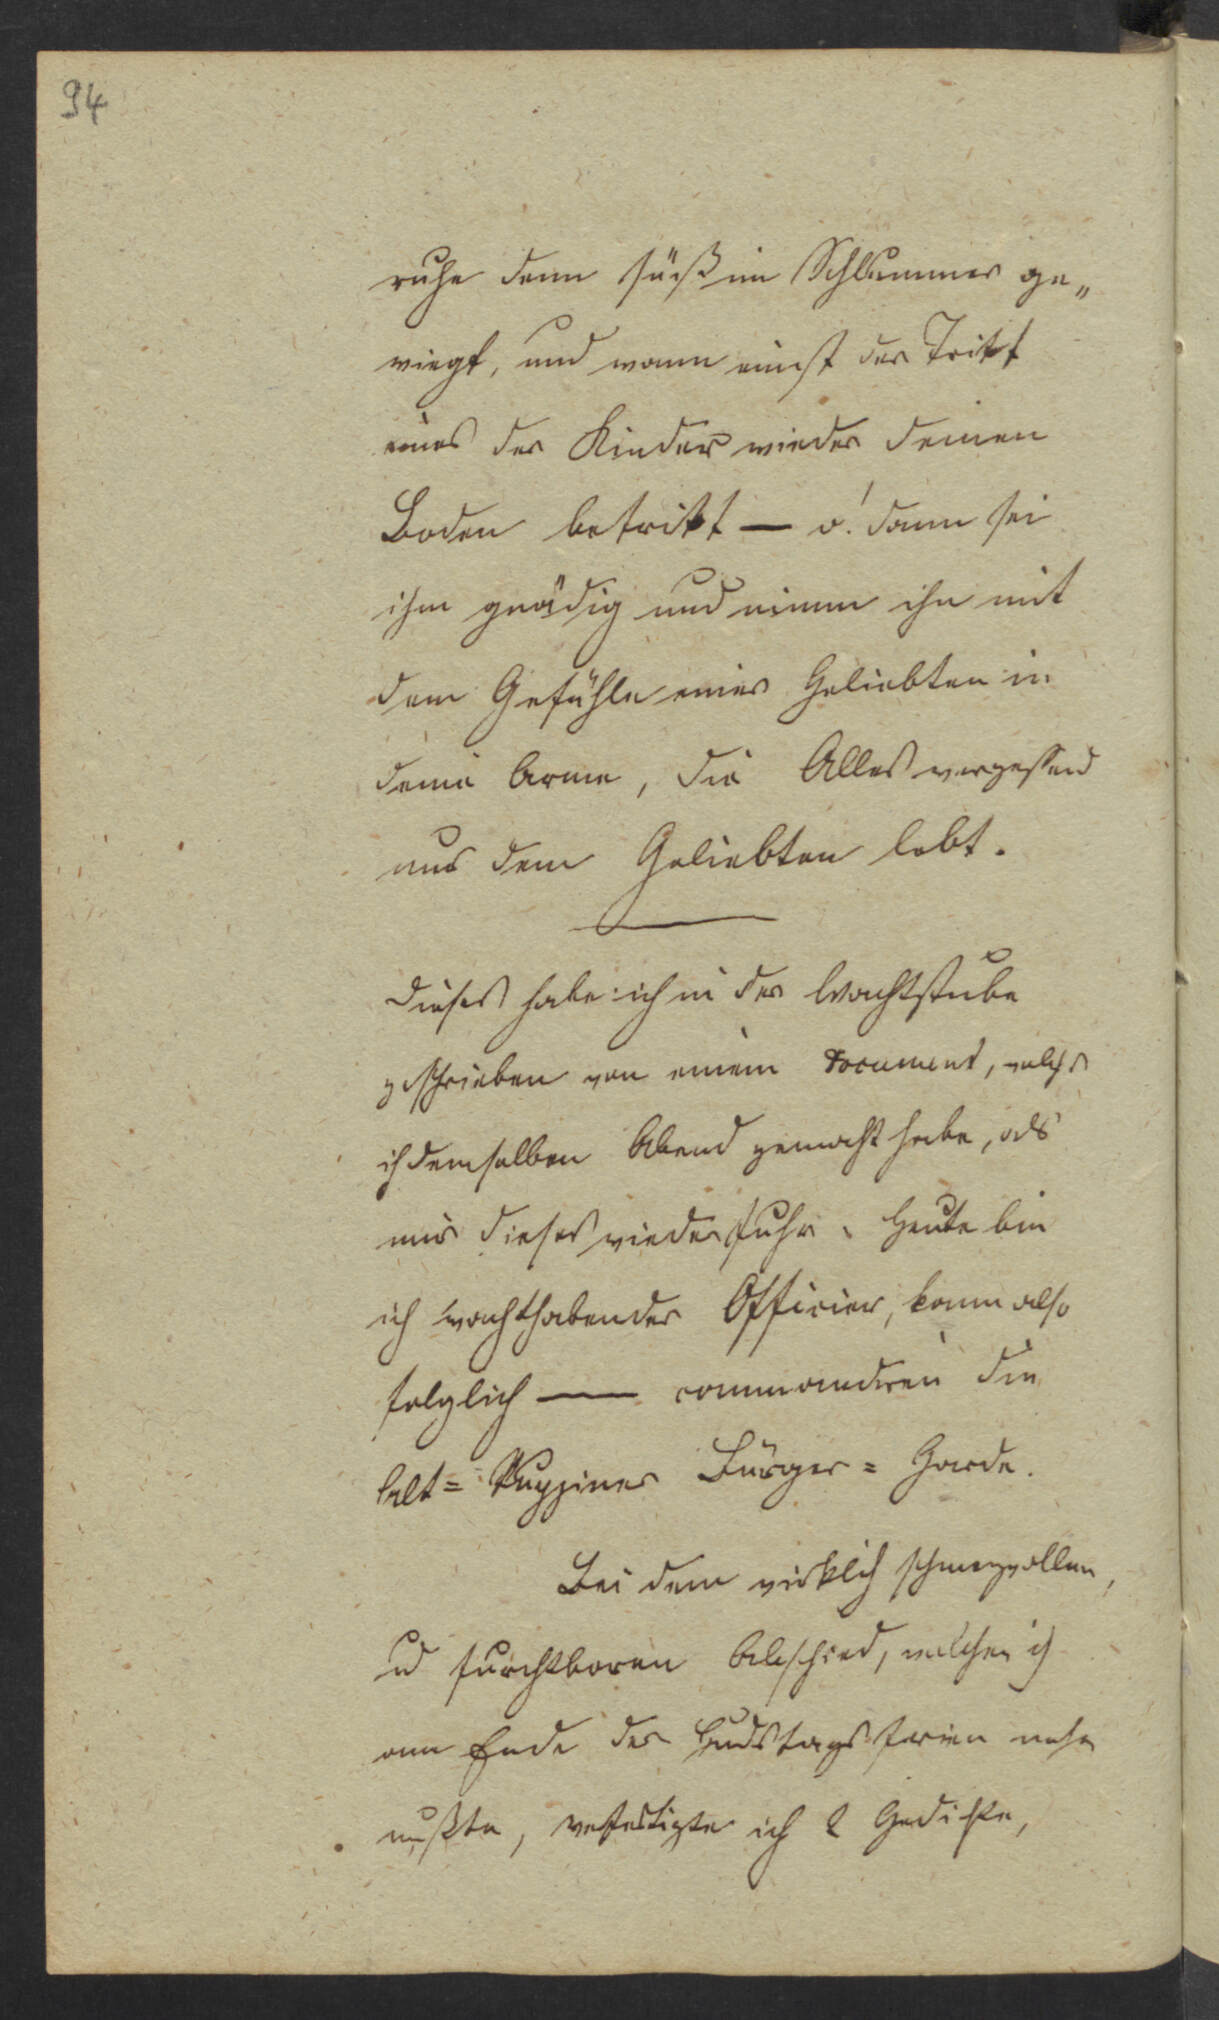 94
ruhe denn süß im Schlummer ge„
wiegt, und wann einst der Tritt
eines der Kinder wieder deinen
Boden betritt — o! dann sei
ihm gnädig und nimm ihn mit
dem Gefühle eines Geliebten in
deine Arme, die Alles vergessend
nur dem Geliebten lebt.
Dieses habe ich in der Wachtstube
geschrieben von einem Document, welchs
ich demselben Abend gemacht habe, als
mir dieses wiederfuhr. Heute bin
ich wachthabender Officier, kann also
folglich — commandiren die
Alt=Ruppiner Bürger=Garde.
Bei dem wirklich schmerzvollen,
u furchtbaren Abschied, welchen ich
am Ende der Hundstagsferien nehm
mußte, verfertigte ich 2 Gedichte,